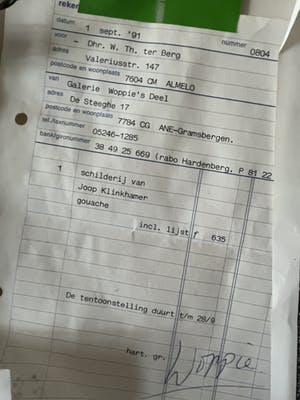 reken
datum 1 sept. '91 nummer 0804
voor - Dhr. W. Th. ter Berg
adres Valeriusstr. 147
postcode en woonplaats 7604 CM ALMELO
van Galerie Woppie's Deel
adres De Steeghe 17
postcode en woonplaats 7784 CG ANE-Gramsbergen.
tel./faxnummer 05246-1285
bank/gironummer 38 49 25 669 (rabo Hardenberg. P 81 22
1 schilderij van
Joop Klinkhamer
gouache
incl. lijst f 635
De tentoonstelling duurt t/m 28/9
hart. gr. Woppie